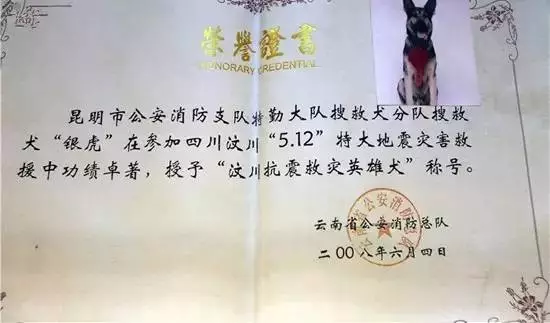 荣誉證書
HONORARY CREDENTIAL
昆明市公安消防支队特勤大队搜救犬分队搜救
犬“银虎”在参加四川汶川“5.12”特大地震灾害救
援中功绩卓著，授予“汶川抗震救灾英雄犬”称号。
云南省公安消防总队
二00八年六月四日